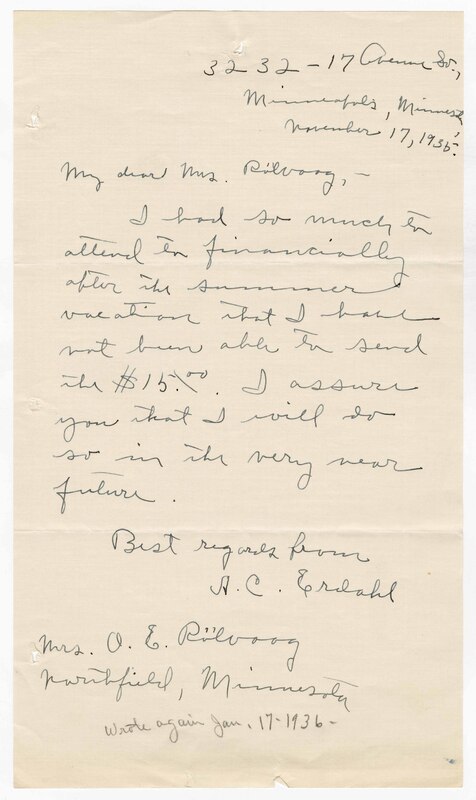 3232 - 17 Avenue So.,
Minneapolis, Minnesota,
November 17, 1935.
My dear Mrs. Rölvaag, -
I had so much to
attend to financially
after the summer
vacation that I have
not been able to send
the $15.00. I assure
you that I will do
so in the very near
future.
Best regards from
A. C. Erdahl
Mrs. O. E. Rölvaag
Northfield, Minnesota
Wrote again Jan. 17-1936-